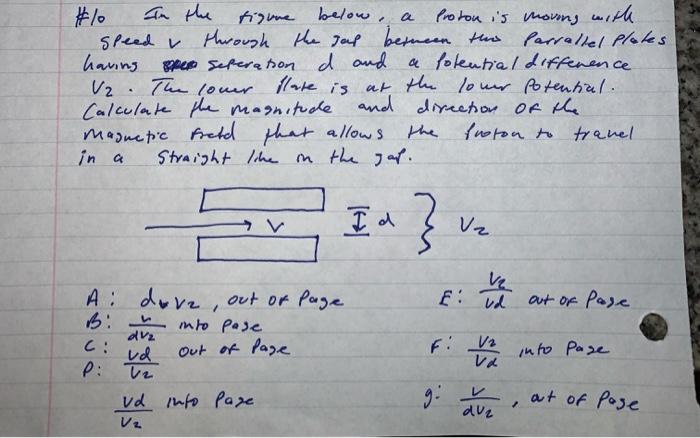 #10 In the figure below, a Proton is moving with
speed v through the gap between two Parrallel Plates
having seperation d and a Potential diffenence
V2. The lower Plate is at the lower Potential.
Calculate the magnitude and direction of the
Magnetic Field that allows the Proton to travel
in a straight line in the gap.
v d V2
A: dvV2, out of Page
B: v/dV2 into Page
C: vd/V2 out of Page
D: vd/V2 into Page
E: V2/vd out of Page
F: V2/Vd into Page
g: v/dV2, out of Page